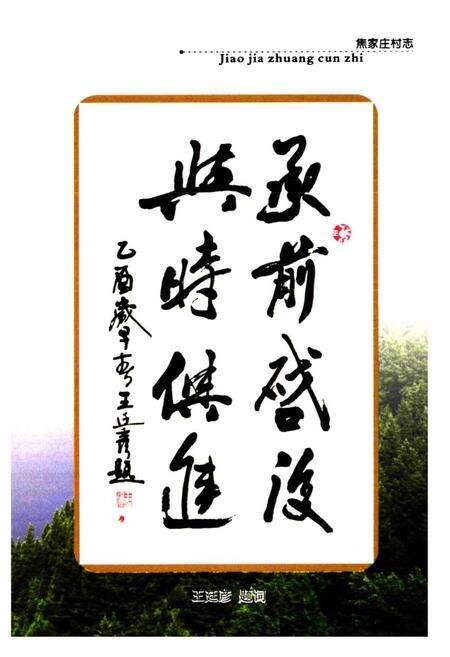 焦家庄村志
Jiao jia zhuang cun zhi
承前啓後
與時俱進
乙酉歲早春王廷彦題
王廷彦 题词